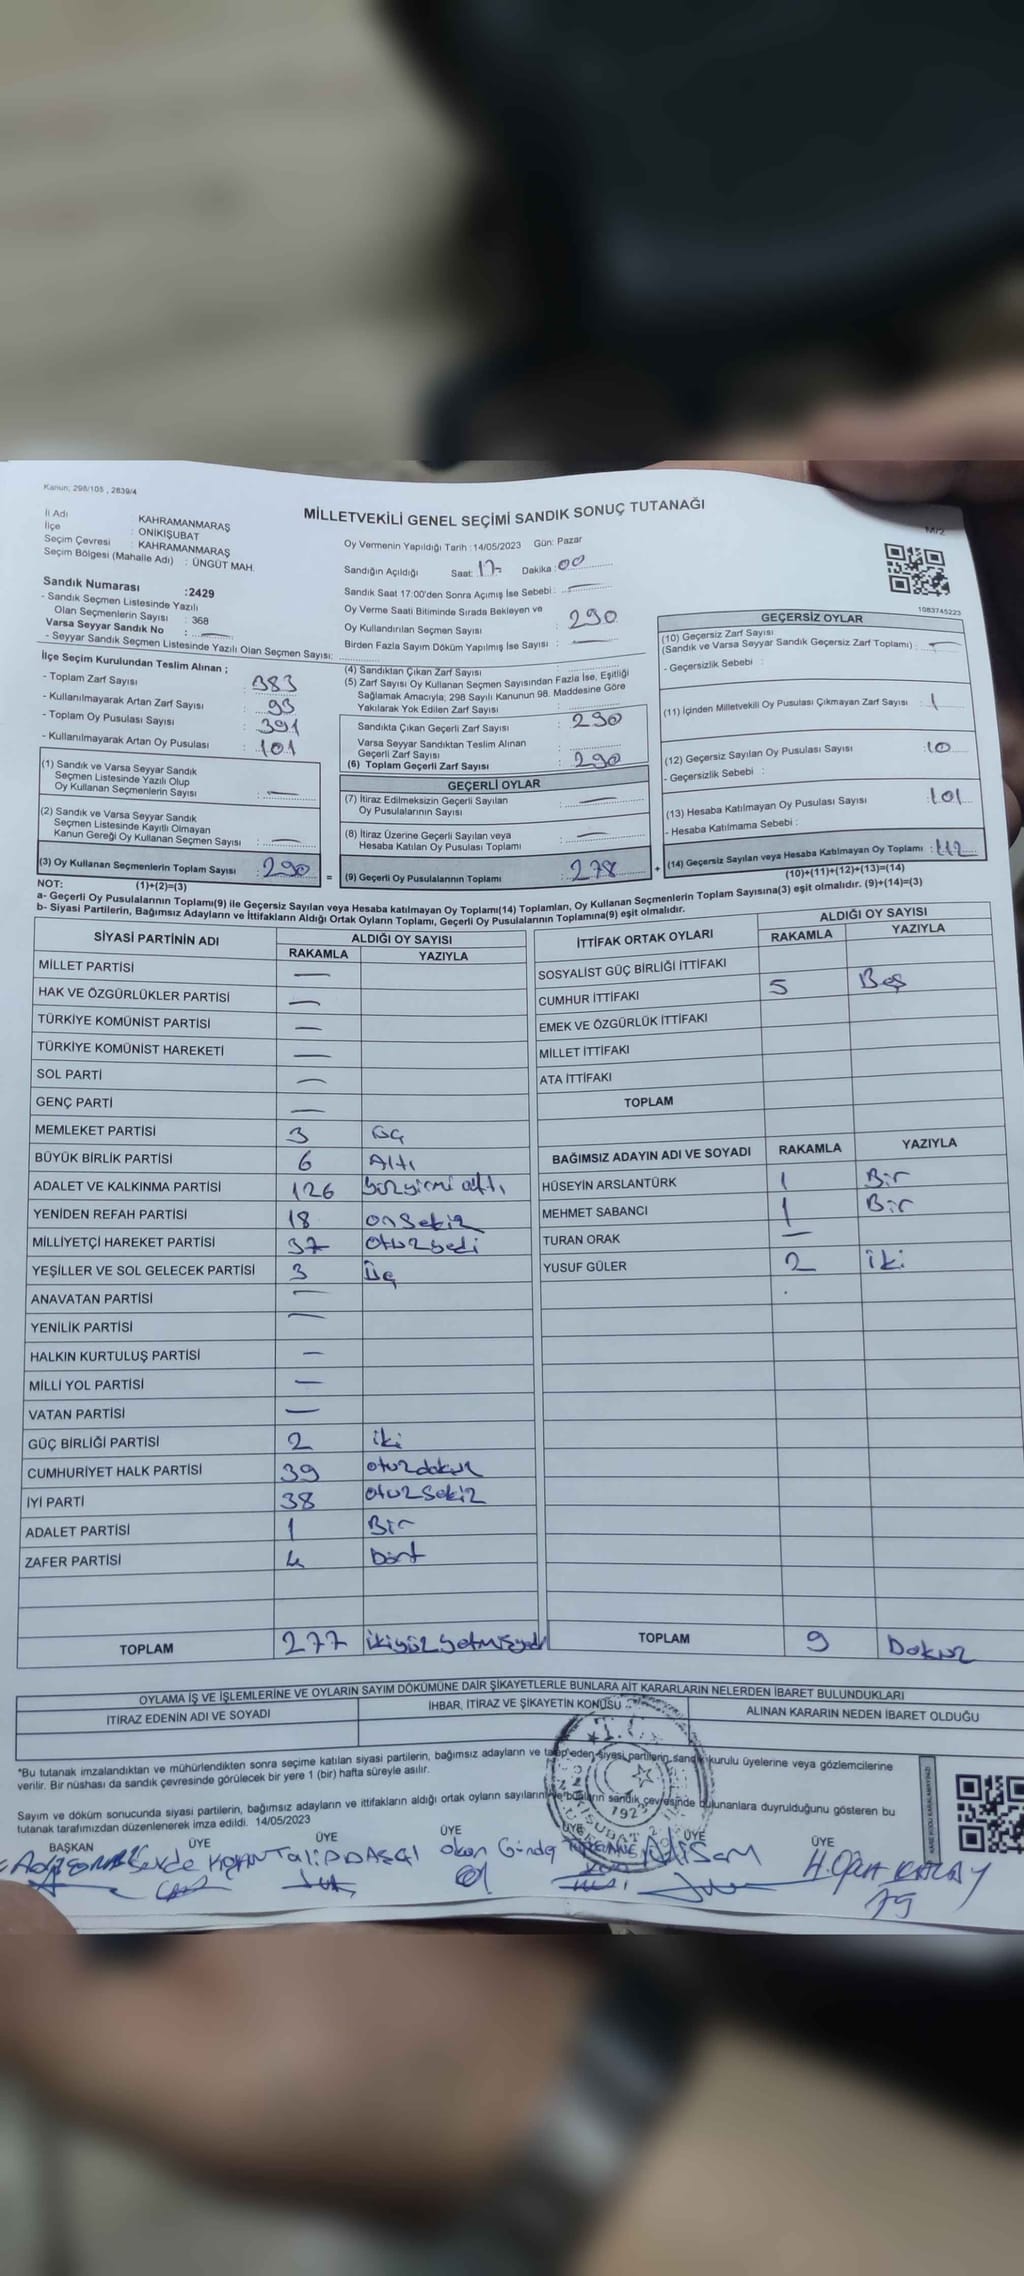 Kanun; 298/105 , 2839/4
MİLLETVEKİLİ GENEL SEÇİMİ SANDIK SONUÇ TUTANAĞI
M/2
İl Adı : KAHRAMANMARAŞ
İlçe : ONİKİŞUBAT
Seçim Çevresi : KAHRAMANMARAŞ
Seçim Bölgesi (Mahalle Adı) : ÜNGÜT MAH.
Sandık Numarası :2429
- Sandık Seçmen Listesinde Yazılı
Olan Seçmenlerin Sayısı : 368
Varsa Seyyar Sandık No : —
- Seyyar Sandık Seçmen Listesinde Yazılı Olan Seçmen Sayısı:
Oy Vermenin Yapıldığı Tarih :14/05/2023 Gün: Pazar
Sandığın Açıldığı Saat: 17 Dakika : 00
Sandık Saat 17:00'den Sonra Açımış İse Sebebi : —
Oy Verme Saati Bitiminde Sırada Bekleyen ve
Oy Kullandırılan Seçmen Sayısı : 290
Birden Fazla Sayım Döküm Yapılmış İse Sayısı : —
1083745223
İlçe Seçim Kurulundan Teslim Alınan ;
- Toplam Zarf Sayısı : 383
- Kullanılmayarak Artan Zarf Sayısı : 93
- Toplam Oy Pusulası Sayısı : 391
- Kullanılmayarak Artan Oy Pusulası : 101
(1) Sandık ve Varsa Seyyar Sandık
Seçmen Listesinde Yazılı Olup
Oy Kullanan Seçmenlerin Sayısı : —
(2) Sandık ve Varsa Seyyar Sandık
Seçmen Listesinde Kayıtlı Olmayan
Kanun Gereği Oy Kullanan Seçmen Sayısı : —
(3) Oy Kullanan Seçmenlerin Toplam Sayısı : 290
(1)+(2)=(3)
(4) Sandıktan Çıkan Zarf Sayısı :
(5) Zarf Sayısı Oy Kullanan Seçmen Sayısından Fazla İse, Eşitliği
Sağlamak Amacıyla, 298 Sayılı Kanunun 98. Maddesine Göre
Yakılarak Yok Edilen Zarf Sayısı :
Sandıkta Çıkan Geçerli Zarf Sayısı : 290
Varsa Seyyar Sandıktan Teslim Alınan
Geçerli Zarf Sayısı :
(6) Toplam Geçerli Zarf Sayısı : 290
GEÇERLİ OYLAR
(7) İtiraz Edilmeksizin Geçerli Sayılan
Oy Pusulalarının Sayısı : —
(8) İtiraz Üzerine Geçerli Sayılan veya
Hesaba Katılan Oy Pusulası Toplamı : —
= (9) Geçerli Oy Pusulalarının Toplamı : 278 +
GEÇERSİZ OYLAR
(10) Geçersiz Zarf Sayısı
(Sandık ve Varsa Seyyar Sandık Geçersiz Zarf Toplamı) : —
- Geçersizlik Sebebi :
(11) İçinden Milletvekili Oy Pusulası Çıkmayan Zarf Sayısı : 1
(12) Geçersiz Sayılan Oy Pusulası Sayısı : 10
- Geçersizlik Sebebi :
(13) Hesaba Katılmayan Oy Pusulası Sayısı : 101
- Hesaba Katılmama Sebebi :
(14) Geçersiz Sayılan veya Hesaba Katılmayan Oy Toplamı : 112
(10)+(11)+(12)+(13)=(14)
NOT:
a- Geçerli Oy Pusulalarının Toplamı(9) ile Geçersiz Sayılan veya Hesaba katılmayan Oy Toplamı(14) Toplamları, Oy Kullanan Seçmenlerin Toplam Sayısına(3) eşit olmalıdır. (9)+(14)=(3)
b- Siyasi Partilerin, Bağımsız Adayların ve İttifakların Aldığı Ortak Oyların Toplamı, Geçerli Oy Pusulalarının Toplamına(9) eşit olmalıdır.
SİYASİ PARTİNİN ADI ALDIĞI OY SAYISI
RAKAMLA YAZIYLA
MİLLET PARTİSİ —
HAK VE ÖZGÜRLÜKLER PARTİSİ —
TÜRKİYE KOMÜNİST PARTİSİ —
TÜRKİYE KOMÜNİST HAREKETİ —
SOL PARTİ —
GENÇ PARTİ —
MEMLEKET PARTİSİ 3 Üç
BÜYÜK BİRLİK PARTİSİ 6 Altı
ADALET VE KALKINMA PARTİSİ 126 yüzyirmi altı
YENİDEN REFAH PARTİSİ 18 onsekiz
MİLLİYETÇİ HAREKET PARTİSİ 37 otuzyedi
YEŞİLLER VE SOL GELECEK PARTİSİ 3 Üç
ANAVATAN PARTİSİ —
YENİLİK PARTİSİ —
HALKIN KURTULUŞ PARTİSİ —
MİLLİ YOL PARTİSİ —
VATAN PARTİSİ —
GÜÇ BİRLİĞİ PARTİSİ 2 iki
CUMHURİYET HALK PARTİSİ 39 otuzdokuz
İYİ PARTİ 38 otuzsekiz
ADALET PARTİSİ 1 Bir
ZAFER PARTİSİ 4 Dört
TOPLAM 277 ikiyüz yetmişyedi
İTTİFAK ORTAK OYLARI ALDIĞI OY SAYISI
RAKAMLA YAZIYLA
SOSYALİST GÜÇ BİRLİĞİ İTTİFAKI
CUMHUR İTTİFAKI 5 Beş
EMEK VE ÖZGÜRLÜK İTTİFAKI
MİLLET İTTİFAKI
ATA İTTİFAKI
TOPLAM
BAĞIMSIZ ADAYIN ADI VE SOYADI RAKAMLA YAZIYLA
HÜSEYİN ARSLANTÜRK 1 Bir
MEHMET SABANCI 1 Bir
TURAN ORAK —
YUSUF GÜLER 2 iki
TOPLAM 9 Dokuz
OYLAMA İŞ VE İŞLEMLERİNE VE OYLARIN SAYIM DÖKÜMÜNE DAİR ŞİKAYETLERLE BUNLARA AİT KARARLARIN NELERDEN İBARET BULUNDUKLARI
İTİRAZ EDENİN ADI VE SOYADI İHBAR, İTİRAZ VE ŞİKAYETİN KONUSU ALINAN KARARIN NEDEN İBARET OLDUĞU
*Bu tutanak imzalandıktan ve mühürlendikten sonra seçime katılan siyasi partilerin, bağımsız adayların ve talep eden siyasi partilerin sandık kurulu üyelerine veya gözlemcilerine
verilir. Bir nüshası da sandık çevresinde görülecek bir yere 1 (bir) hafta süreyle asılır.
Sayım ve döküm sonucunda siyasi partilerin, bağımsız adayların ve ittifakların aldığı ortak oyların sayıların ve bunların sandık çevresinde bulunanlara duyrulduğunu gösteren bu
tutanak tarafımızdan düzenlenerek imza edildi. 14/05/2023
T.C.
1923
BAŞKAN ÜYE ÜYE ÜYE ÜYE ÜYE ÜYE